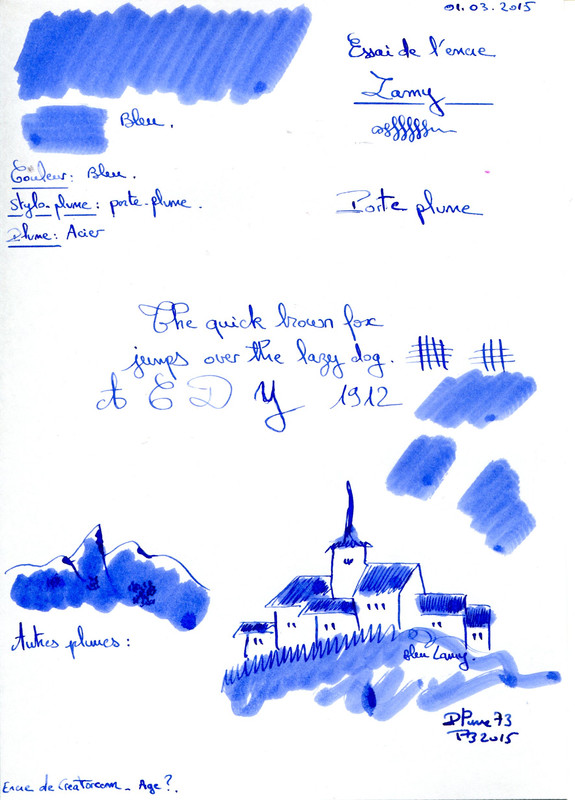 01.03.2015
Essai de l'encre
Lamy
Bleu.
Couleur: Bleu.
Stylo-plume: porte-plume.
Plume: Acier
Porte plume
The quick brown fox
jumps over the lazy dog.
A E D Y 1912
Autres plumes:
Bleu Lamy.
DPlume73
2015
Encre de Creatorcenn - Age?.